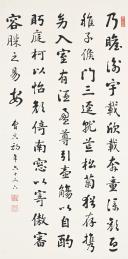 乃瞻衡宇載欣載奔童僕歡迎
稚子候門三逕就荒松菊猶存攜
幼入室有酒盈尊引壺觴以自酌
眄庭柯以怡顏倚南窗以寄傲審
容膝之易安
年八十六